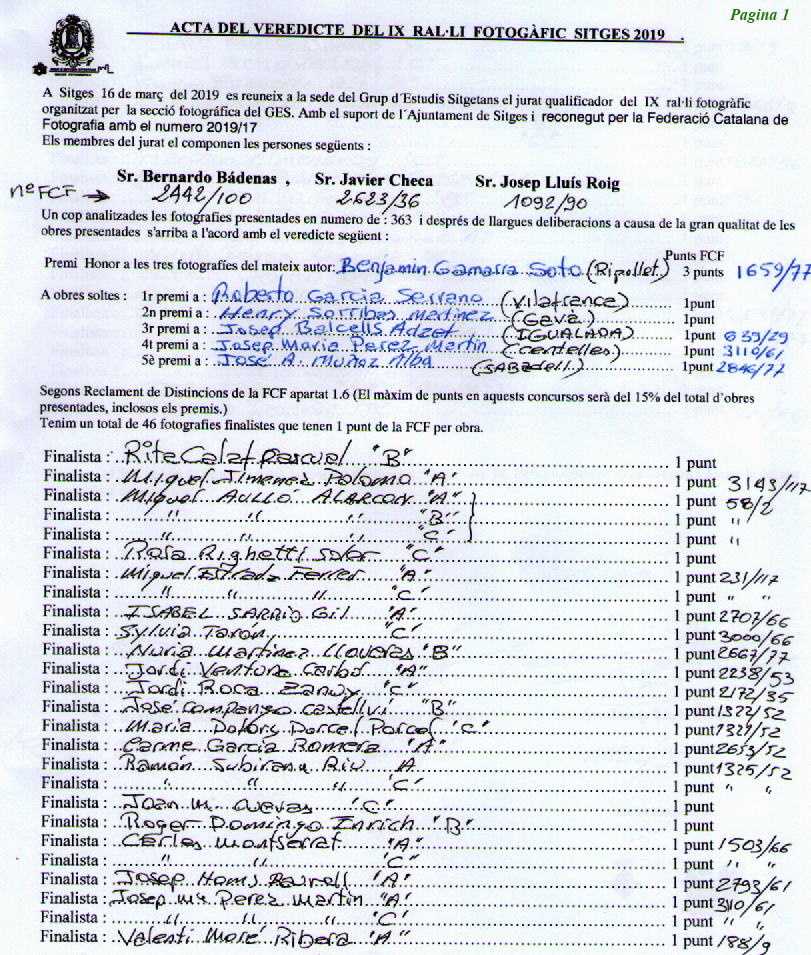 Pagina 1
ACTA DEL VEREDICTE DEL IX RAL·LI FOTOGÀFIC SITGES 2019 .
A Sitges 16 de març del 2019 es reuneix a la sede del Grup d´Estudis Sitgetans el jurat qualificador del IX ral·li fotogràfic
organitzat per la secció fotográfica del GES. Amb el suport de l´Ajuntament de Sitges i reconegut per la Federació Catalana de
Fotografia amb el numero 2019/17
Els membres del jurat el componen les persones següents :
Sr. Bernardo Bádenas , Sr. Javier Checa Sr. Josep Lluís Roig
nº FCF → 2442/100 2623/36 1092/90
Un cop analitzades les fotografies presentades en numero de : 363 i després de llargues deliberacions a causa de la gran qualitat de les
obres presentades s'arriba a l'acord amb el veredicte següent :
Punts FCF
Premi Honor a les tres fotografíes del mateix autor: Benjamin Gamarra Soto (Ripollet) 3 punts 1659/77
A obres soltes : 1r premi a : Roberto Garcia Serrano (Vilafranca) 1punt
2n premi a : Henry Sarribas Martinez (Gavà) 1punt
3r premi a : Josep Balcells Adzet (IGUALADA) 1punt 639/29
4t premi a : Josep Maria Perez Martin (Centelles) 1punt 3110/61
5è premi a : José A. Muñoz Alba (SABadell) 1punt 2846/77
Segons Reclament de Distincions de la FCF apartat 1.6 (El màxim de punts en aquests concursos serà del 15% del total d'obres
presentades, inclosos els premis.)
Tenim un total de 46 fotografies finalistes que tenen 1 punt de la FCF per obra.
Finalista : Rita Calaf Pascual "B" 1 punt
Finalista : Miguel Jimenez Palomo "A" 1 punt 3143/117
Finalista : Miguel AULLÓ ALARCON "A" 1 punt 58/2
Finalista : " " " "B" 1 punt "
Finalista : " " " "C" 1 punt "
Finalista : Rosa Righetti Soler "C" 1 punt
Finalista : Miguel Estrada Ferrer "A" 1 punt 231/117
Finalista : " " " "C" 1 punt " "
Finalista : ISABEL SARRIÓ Gil "A" 1 punt 2707/66
Finalista : Sylvia Tarón "C" 1 punt 3000/66
Finalista : Nuria Martinez Lloveras "B" 1 punt 2667/77
Finalista : Jordi Ventura Carbó "A" 1 punt 2238/53
Finalista : Jordi Roca Zanuy "C" 1 punt 2172/35
Finalista : José Compango Castellvi "B" 1 punt 1322/52
Finalista : Maria Dolors Porcel Porcel "C" 1 punt 1321/52
Finalista : Carme Garcia Romera "A" 1 punt 2653/52
Finalista : Ramón Subirana Riu A 1 punt 1325/52
Finalista : " " " "C" 1 punt " "
Finalista : Joan M. Cuevas "C" 1 punt
Finalista : Roger Domingo Enrich "B" 1 punt
Finalista : Carles Montserrat "A" 1 punt 1503/66
Finalista : " " "C" 1 punt " "
Finalista : Josep Homs "A" 1 punt 2793/61
Finalista : Josep Mª Perez Martin "A" 1 punt 3110/61
Finalista : " " " "C" 1 punt " "
Finalista : Valenti Moré Ribera "A" 1 punt 188/9